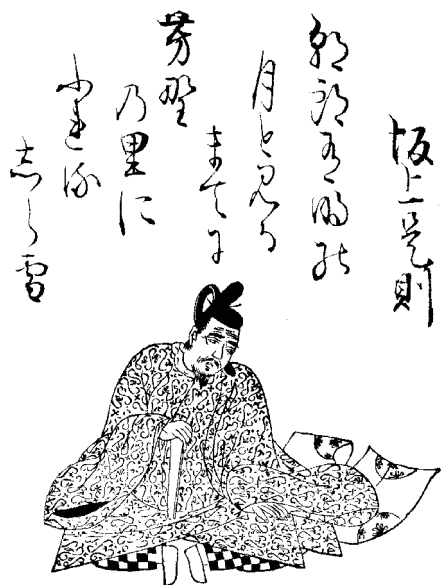 坂上是則
朝朗有明の
月と見る
まてに
芳野
乃里に
ふれる
志ら雪